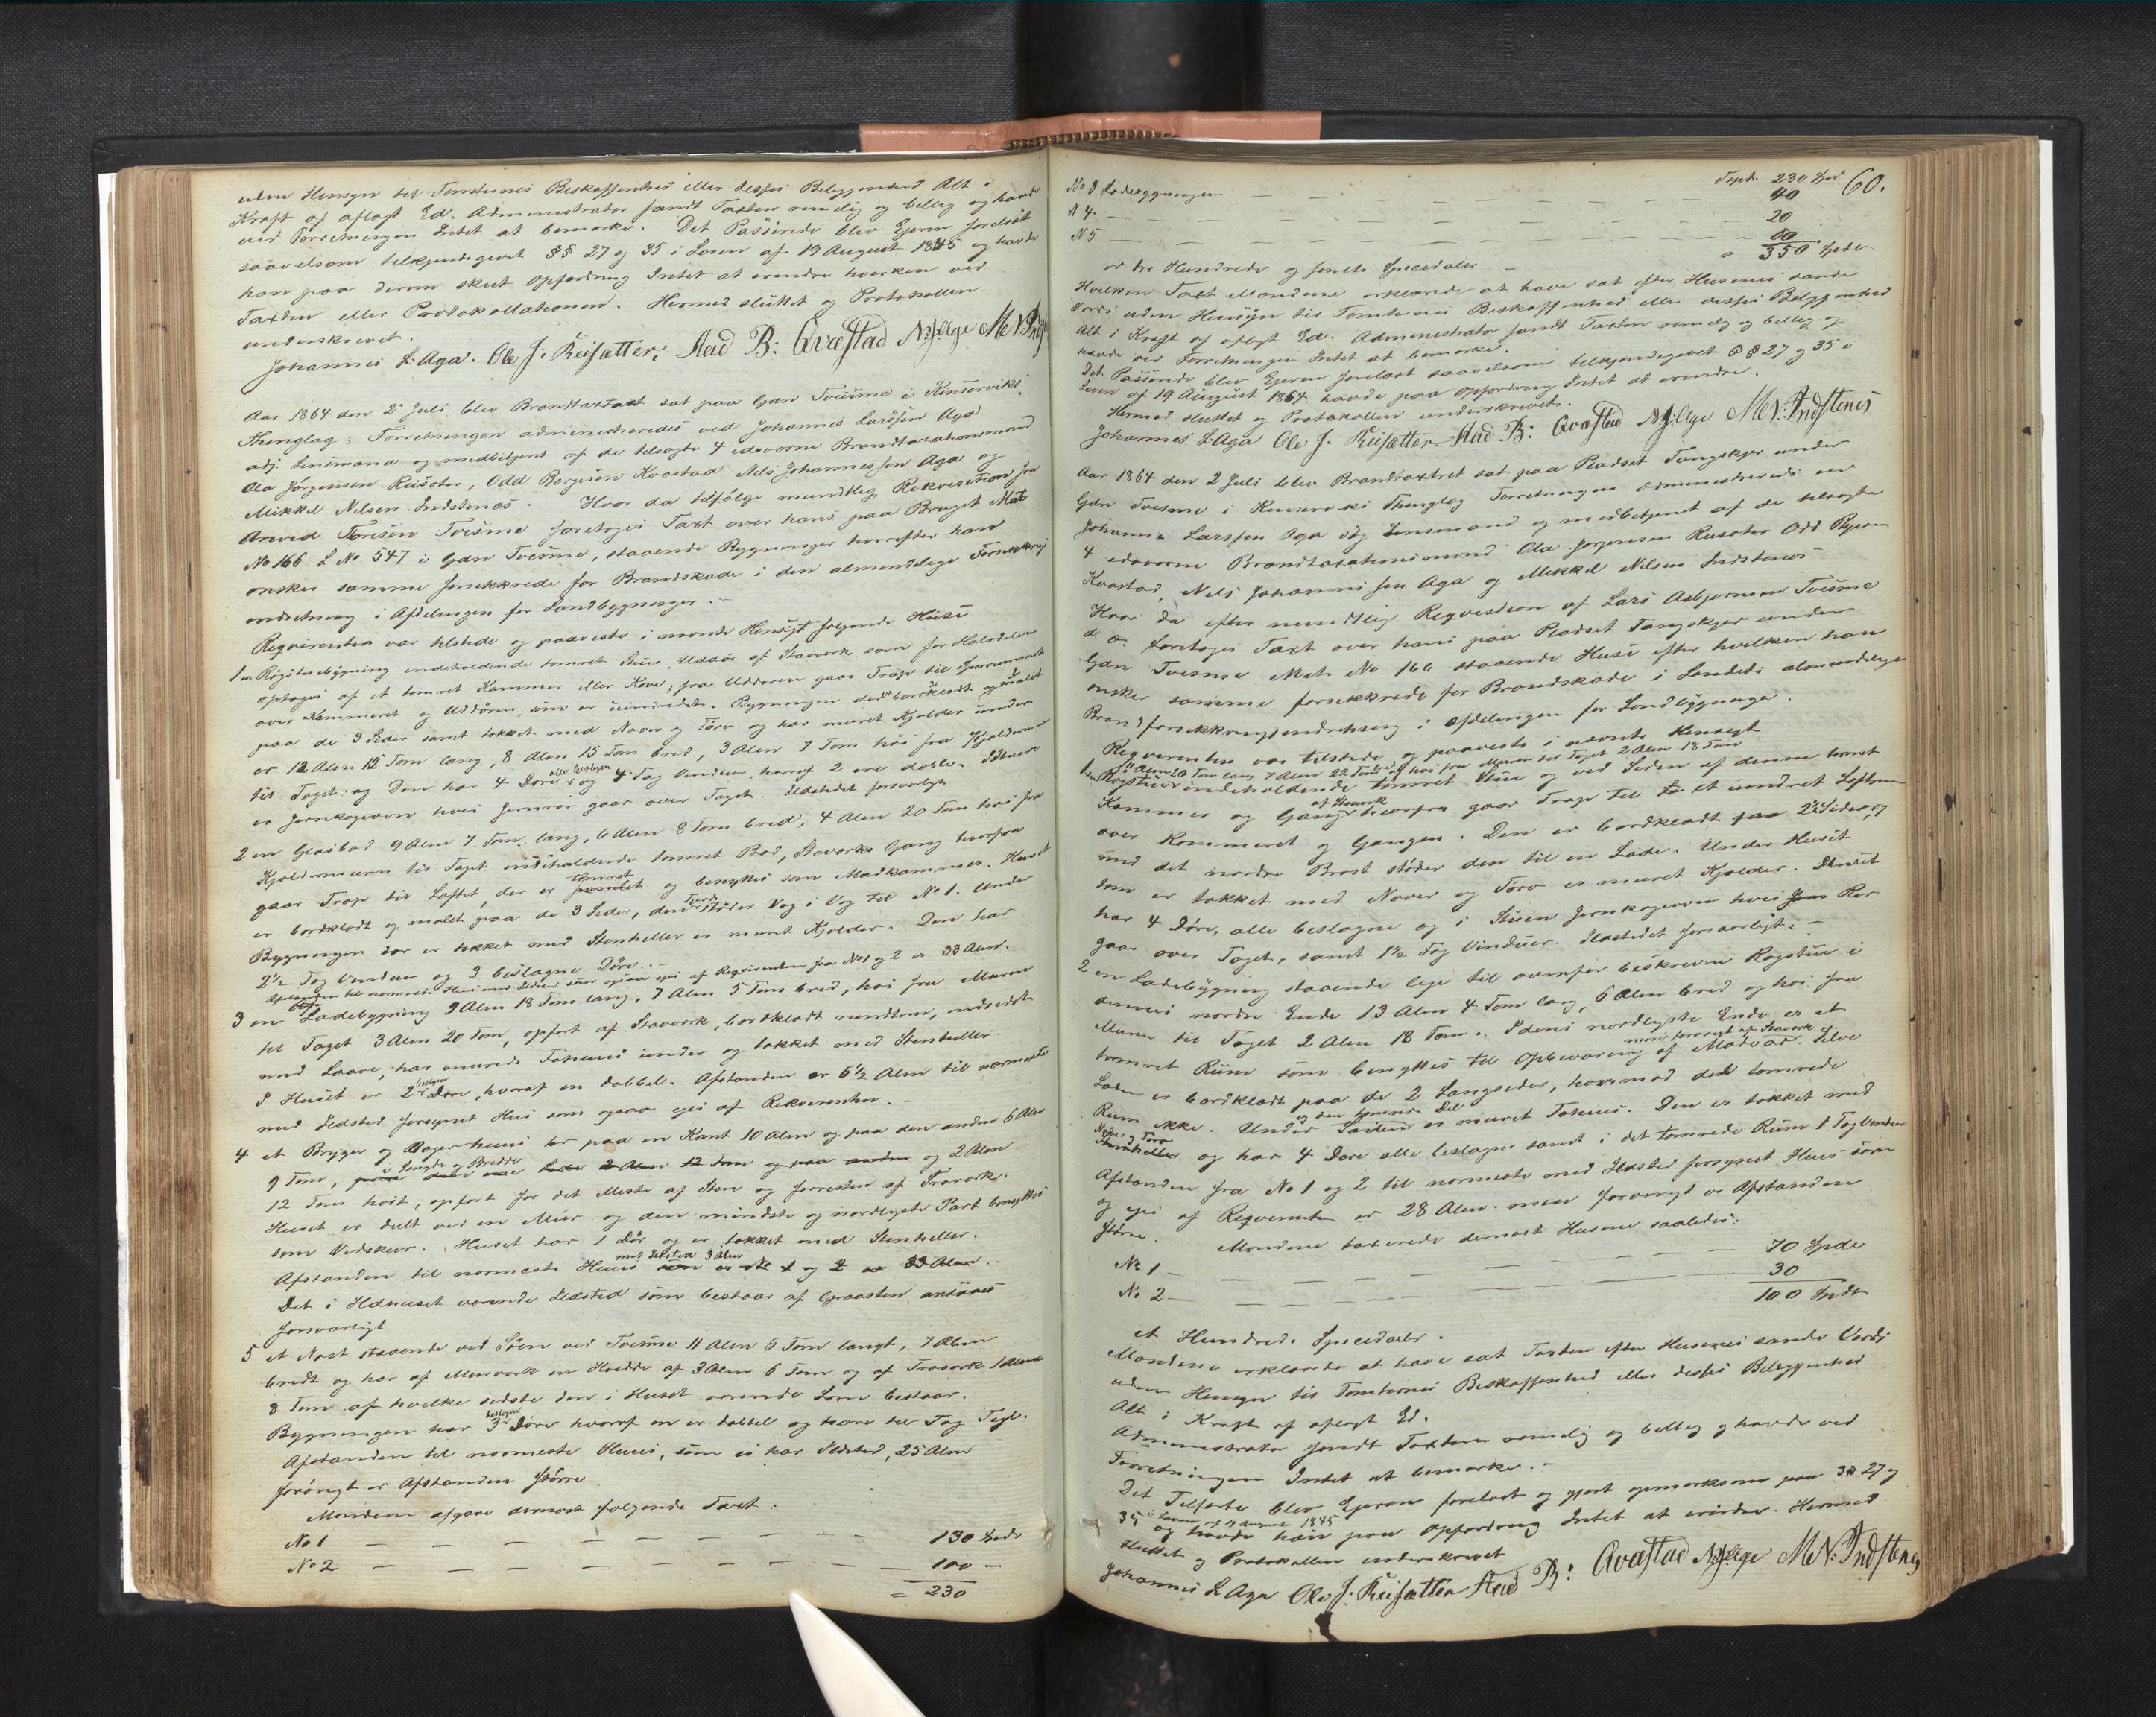 uden Hensyn til Tomternes Beskaffenhed eller desses Beliggenhed Alt i
Kraft af aflagt Ed. Administrator fandt Taxten rimelig og billig og havde
ved Forretningen Intet at bemærke. Det Passerede blev Ejeren forelæst
saavelsom tilkjendegivet §§ 27 og 35 i Loven af 19 August 1845 og havde
han paa derom skeet Opfordring Intet at erindre hverken ved
Taxten eller Protokollationen. Hermed sluttet og Protokollen
underskrevet.
Johannes L. Aga. Ole J. Reisætter, Aad B: Qvæstad NJsAge M. N. Indst
Aar 1864 den 2 Juli blev Brandtaxtast sat paa Gdn Tveisme i Kinserviks
Thinglag; Forretningen administreredes ved Johannes Larssen Aga
adj. Lensmand og medbetjent af de tilsagte 4 edsvorne Brandtaxationsmænd
Ola Jørgensen Reisæter, Odd Bergesen Kvæstad Nels Johannessen Aga og
Mikkel Nilsen Indstenæs. Hvor da tilfølge mundtlig Rekvisition fra
Arnved Toresen Tveisme foretoges Taxt over hans paa Bruget Mat
No 166 L No 547 i Gdn Tveisme, staaende Bygninger hvorefter han
ønsker samme forsikkrede for Brandskade i den almindelige Forsikkrings
indretning i Afdelingen for Landbygninger. —
Reqvirenten var tilstede og paaviste i nævnte Hensigt følgende Huse
1 en Røgstuebygning indeholdende tømret Stue, Uddør af Stavverk som for Halvdelen
optages af et tømret Kammer eller Kove, fra Uddøren gaar Trap til
over Kammeret og Uddøren, som er uindredet. Bygningen er bordklædt og malet
paa de 3 Sider samt tækket med Næver og Tørv og har muret Kjelder under
er 12 Alen 12 Tom lang, 8 Alen 15 Tom bred, 3 Alen 7 Tom høi fra Kjeldermuren
til Taget: og Den har 4 Døre alle beslagne og 4 Fag Vinduer, hvoraf 2 ere doble. I Stuen
er Jernkogeovn hvis Jernrør gaar over Taget. Ildstedet forsvarligt
2 en Glasbod 9 Alen 7. Tom. lang, 6 Alen 8 Tom bred, 4 Alen 20 Tom høi fra
Kjeldermuren til Taget indeholdende tømret Bod, Stavverks Gang hvorfra
gaar Trap til Loftet, der er tømret og benyttes som Madkammer. Huset
er bordklædt og malet paa de 3 Sider, den fjerde støder Væg i Væg til No 1. Under
Bygningen der er tækket med Stenheller er muret Kjelder. Den har
2½ Fag Vinduer og 3 beslagne Døre. —
Afstanden til nærmeste Huus med Ildsted som ogsaa ejes af Reqvirenten fra No 1 og 2 er 33 Alen.
3 en Ladebygning 9 Alen 18 Tom lang, 7 Alen 5 Tom bred, høi fra Muren
til Taget 3 Alen 20 Tom, opført af Stavverk, bordklædt rundtom, indredet
med Laave, har murede Fæhuus under og tækket med Stenheller.
I Huset er 2 beslagne Døre, hvoraf en dobbel. Afstanden er 6½ Alen til nærmeste
med Ildsted forsynet Hus som ogsaa ejes af Rekvirenten. —
4 et Brygger og Bagerhuus er paa en Kant 10 Alen og paa den anden 6 Alen
9 Tom, i Længde og Bredde og 2 Alen
12 Tom høit, opført for det Meste af Sten og forresten af Trævork.
Huset er delt ved en Muur og den mindste og nordligste Part benyttes
som Vedskur. Huset har 1 Dør og er tækket med Stenheller.
Afstanden til nærmeste Huus med Ildsted 3 Alen
Det i Ildhuset værende Ildsted som bestaar af Graasten ansaaes
forsvarligt
5 et Nøst staaende ved Søen ved Tveisme 11 Alen 6 Tom langt, 7 Alen
bredt og har af Muurverk en Høidde af 3 Alen 6 Tom og af Træverk 1 Alen
8 Tom af hvilke sidste den i Huset værende Lem bestaar.
Bygningen har 3 beslagne Døre hvoraf en er dobbel og tvende til Tag Tegl.
Afstanden til nærmeste Huus, som ei har Ildsted, 25 Alen
førøvrigt er Afstanden større
Mændene afgave dernæst følgende Taxt:
No 1 — — — — — — 130 Spdr
No 2 — — — — — — 100 —
= 230
60.
Tspt. 230 Spd
No 3 Ladebygningen — — — — 40
N 4 — — — — 20
N 5 — — — — 60
= 350 Spdr
er tre Hundrede og femti Speciedaler —
Hvilken Taxt Mændene erklærede at have sat efter Husenes sande
Værdi uden Hensyn til Tomtenes Beskaffenhed eller desses Beliggenhed
Alt i Kraft af aflagt Ed. Administrator fandt Taxten rimelig og billig og
havde ved Forretningen Intet at bemærke.
Det Passerede blev Ejeren forelæst saavelsom tilkjendegivet §§ 27 og 35 i
Loven af 19 August 1864 havde paa Opfordring Intet at erindre.
Hermed sluttet og Protokollen underskrevets.
Johannes L. Aga Ole J. Reisætter. Aad B: Qvæstad NJsAge M. N. Indstenes
Aar 1864 den 2 Juli blev Brandtaxtret sat paa Pladset Tangskjær under
Gdn Tveisme i Kinserviks Thinglag Forretningen administreredes ved
Johannes Larssen Aga adj Lensmand og medbetjent af de tilsagte
4 edsvorne Brandtaxationsmænd Ola Jørgensen Reisæter Odd Bergesen
Kvæstad, Nels Johannessen Aga og Mikkel Nilsen Indstenæs
Hvor da efter mundtlig Reqvisition af Lars Asbjørnsen Tveisme
d. æ. foretoges Taxt over hans paa Pladset Tangskjær under
Gdn Tveisme Mat. No 166 staaende Huse efter hvilken han
ønsker samme forsikkrede for Brandskade i Landets almindelige
Brandforsikkringsindretning i Afdelingen for Landbygninger.
Reqvirenten var tilstede og paaviste i nævnte Hensigt
11 Alen 20 Tom lang 7 Alen 22 Tom bred og høi fra Muren til Taget 2 Alen 18 Tom
1 en Røgstue indeholdende tømret Stue og ved Siden af denne tømret
Kammer og Gang af Stavverk hvorfra gaar Trap til et uindret Loftrum
over Kammeret og Gangen. Den er bordklædt paa 2½ Sider, og
med det nordre Brøst støder den til en Lade. Under Huset
som er tækket med Næver og Tørv er muret Kjelder. Huset
har 4 Døre, alle beslagne og i Stuen Jernkogeovn hvis Rør
gaar over Taget, samt 1½ Fag Vinduer. Ildstedet forsvarligt. —
2 en Ladebygning staaende lige til ovenfor beskrevne Røgstue i
dennes nordre Ende 13 Alen 4 Tom lang, 6 Alen bred og høi fra
Muren til Taget 2 Alen 18 Tom. I dens nordligste Ende er et
tømret Rum som benyttes til Opbevaring af Madvar. Selve
men forøvrigt af Stavverk
Laden er bordklædt paa de 2 Langsider, hvorimod det tømrede
Rum ikke. Under Laden og den tømrede Del er muret Fæhuus. Den er tækket med
Næver og Tørv og har 4 Døre alle beslagne samt i det tømrede Rum 1 Fag Vinduer
Afstanden fra No 1 og 2 til nærmeste med Ildsted forsynet Huus som
og ejes af Reqvirenten er 28 Alen. men forøvrigt er Afstanden
større. Mændene taxerede dernæst Husene saaledes:
No 1 — — — — — 70 Spdr
No 2 — — — — — 30
100 Spdr
et Hundrede Speciedaler.
Mændene erklærede at have sat Taxten efter Husenes sande Værdi
uden Hensyn til Tomternes Beskaffenhed eller desses Beliggenhed
Alt i Kraft af aflagt Ed.
Administrator fandt Taxten rimelig og billig og havde ved
Forretningen Intet at bemærke. —
Det Tilførte blev Ejeren forelæst og gjort opmærksom paa §§ 27 og
35 i Loven af 19 August 1845 og havde han paa Opfordring Intet at erindre. Hermed
sluttet og Protokollen underskrevet
Johannes L Aga Ole J. Reisætter Aad B: Qvæstad NJsAge M. N. Indstenes